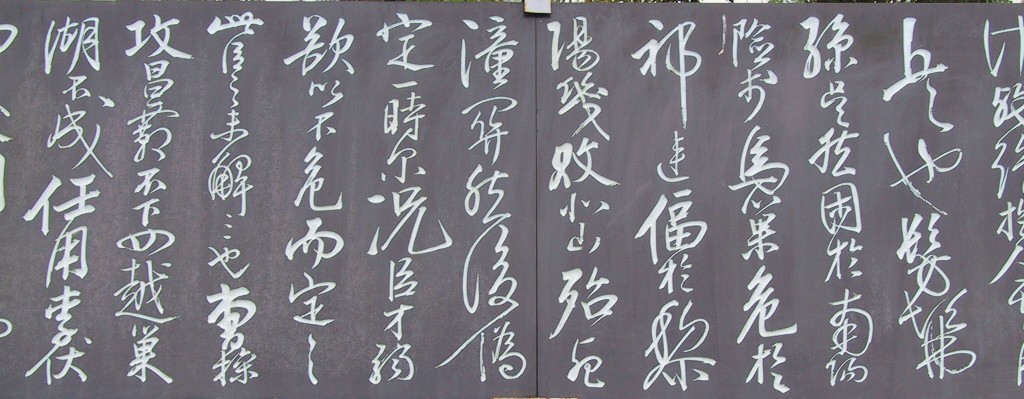 兵也髣髴
孫吳然困於南陽
險於烏巢危於
祁連偪於黎
陽幾敗北山殆死
潼關然後偽
定一時爾況臣才弱
欲以不危而定之
此臣之未解三也曹操
攻昌霸不下四越巢
湖不成任用李伏